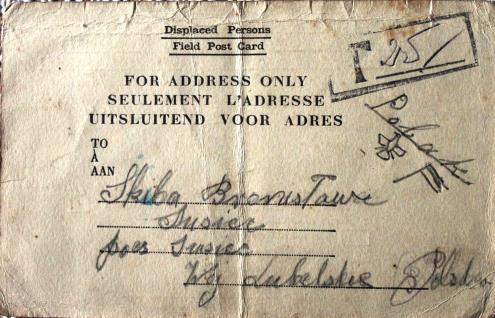 Displaced Persons
Field Post Card
T 25/
FOR ADDRESS ONLY
SEULEMENT L'ADRESSE
UITSLUITEND VOOR ADRES
TO
À
AAN
Skiba Bronisława
Susiec
pocz Susiec
Woj Lubelskie Polska